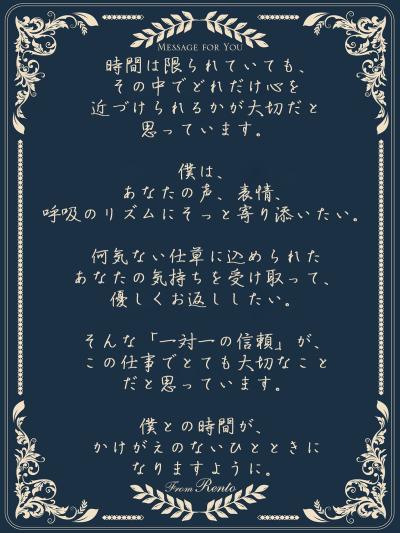 MESSAGE FOR YOU
時間は限られていても、
その中でどれだけ心を
近づけられるかが大切だと
思っています。
僕は、
あなたの声、表情、
呼吸のリズムにそっと寄り添いたい。
何気ない仕草に込められた
あなたの気持ちを受け取って、
優しくお返ししたい。
そんな「一対一の信頼」が、
この仕事でとても大切なこと
だと思っています。
僕との時間が、
かけがえのないひとときに
なりますように。
From Rento